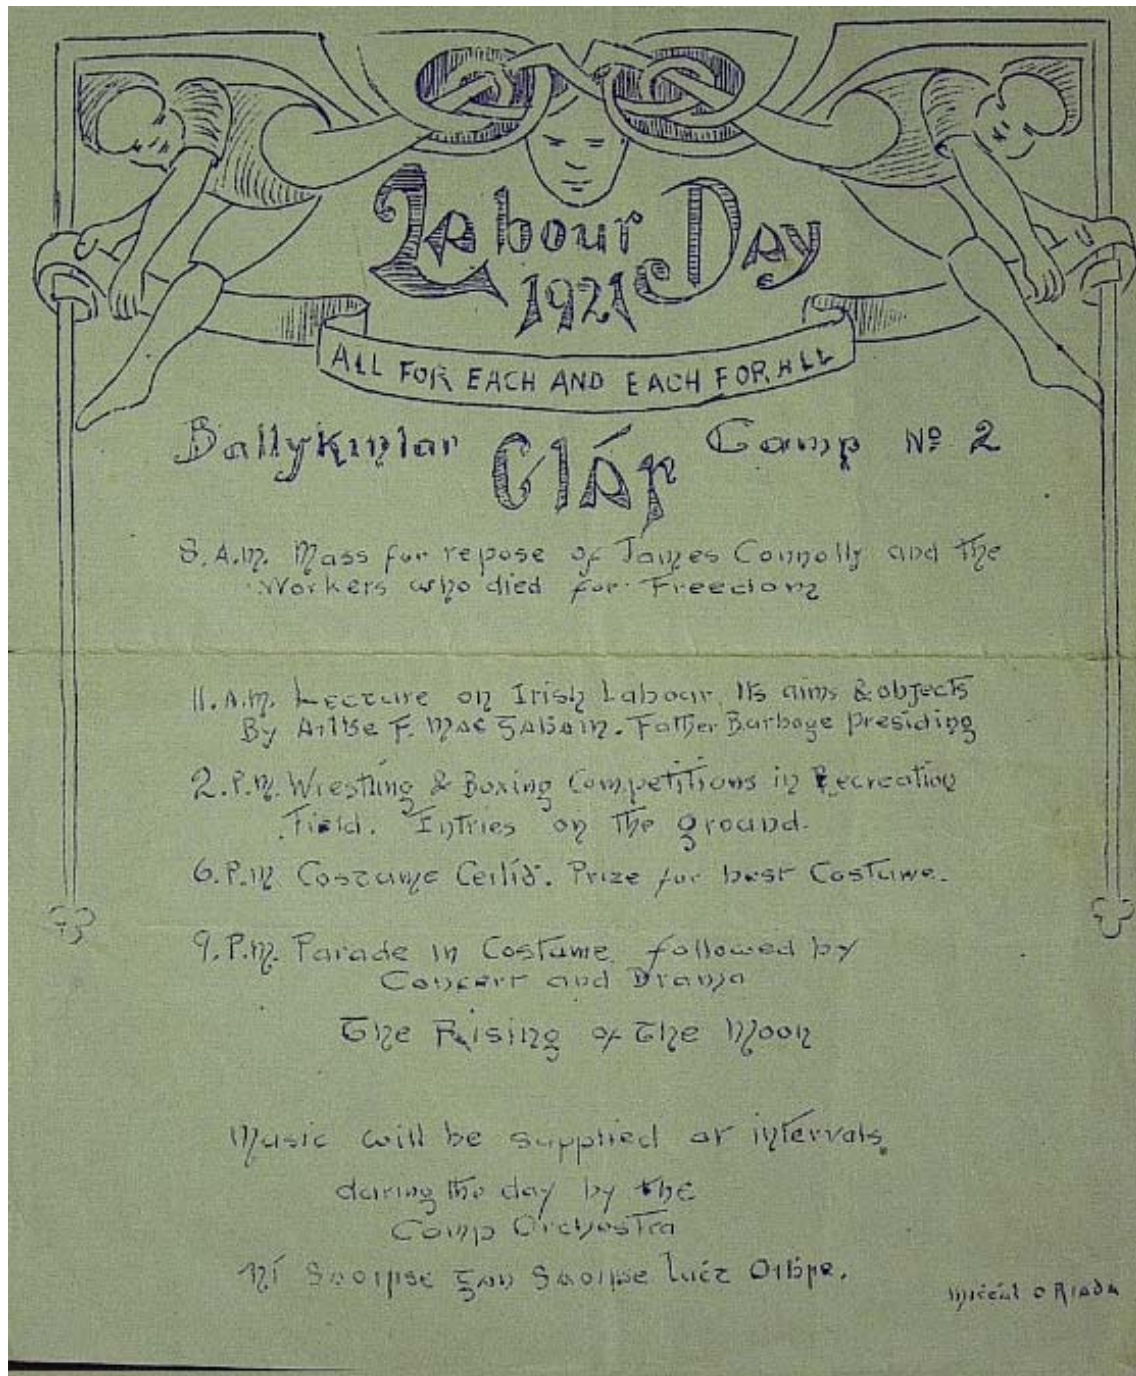 Labour Day
1921
ALL FOR EACH AND EACH FOR ALL
Ballykinlar Camp Nº 2
Clár
8. A.M. Mass for repose of James Connolly and the
Workers who died for Freedom
11. A.M. Lecture on Irish Labour, Its aims & objects
By F. Mac Father Burbage presiding
2. P.M. Wrestling & Boxing Competitions in Recreation
Field. Entries on the ground.
6. P.M. Costume Ceiliḋ. Prize for best Costume.
9. P.M. Parade in Costume followed by
Concert and Drama
The Rising of The Moon
Music will be supplied at intervals
during the day by the
Camp Orchestra
Ní Saoirse gan Saoirse luċt Oibre.
Miċeál O Riada